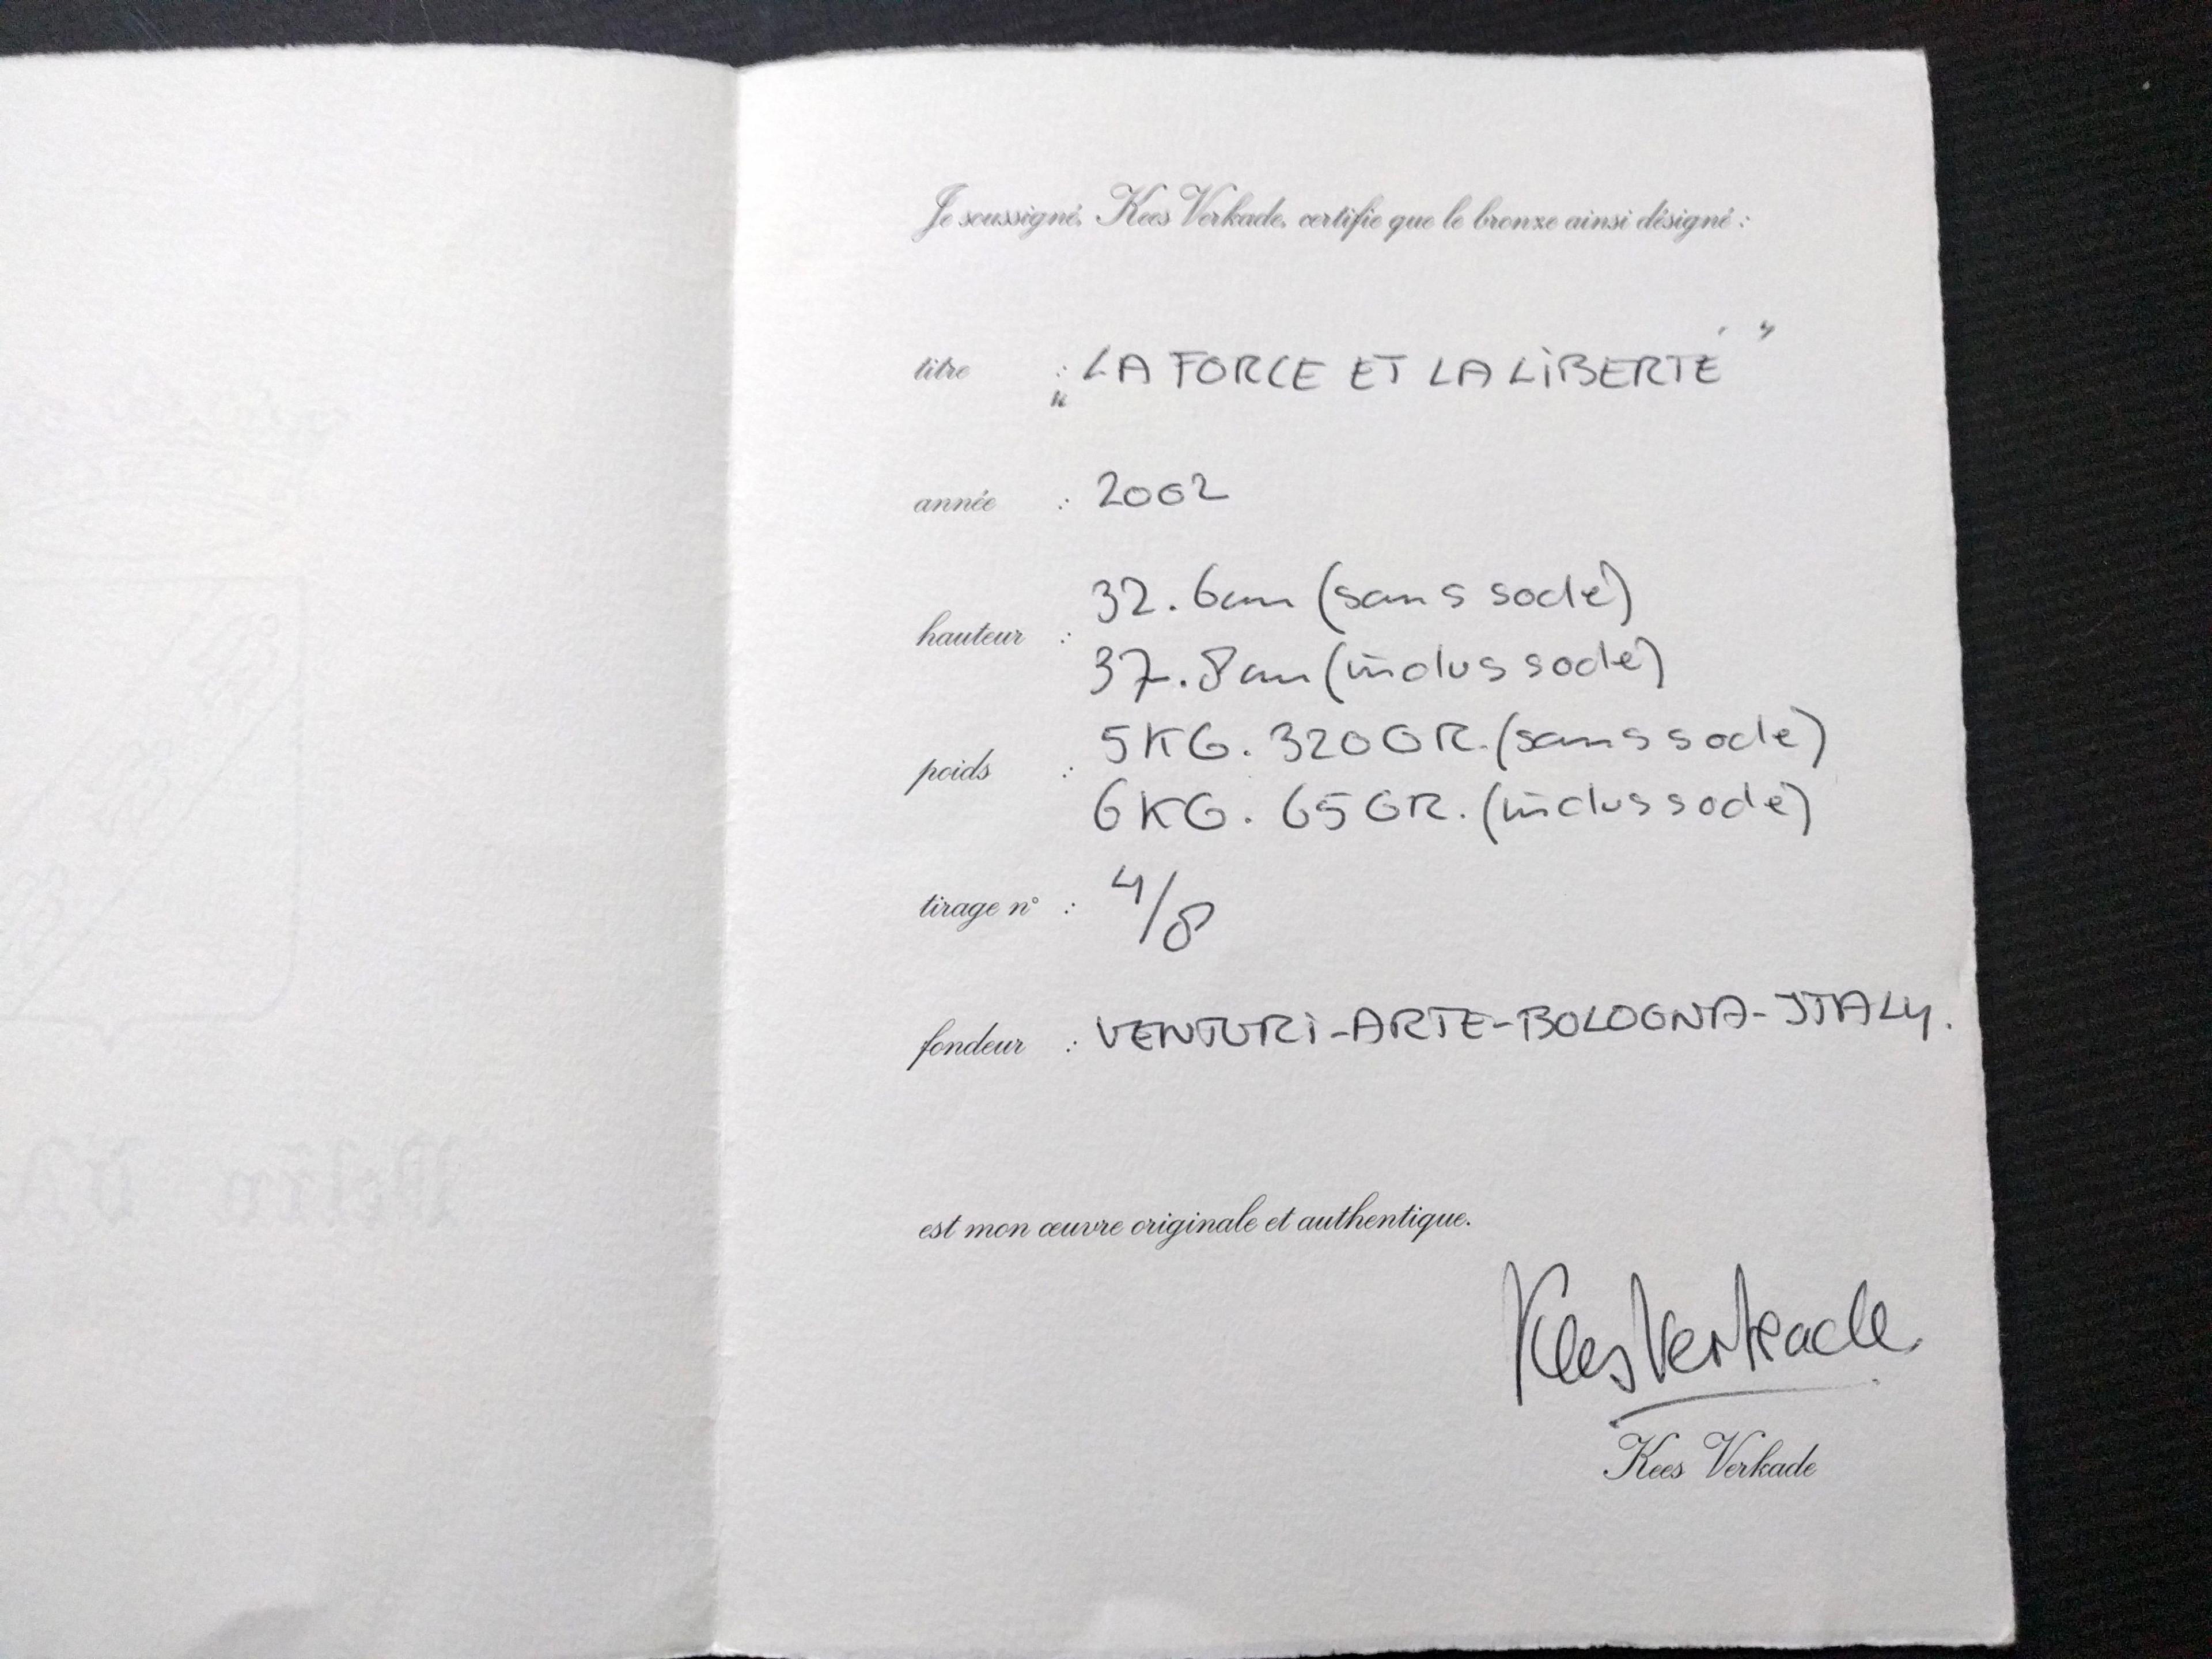 Je soussigné, Kees Verkade, certifie que le bronze ainsi désigné :
titre : „LA FORCE ET LA LIBERTÉ"
année : 2002
hauteur : 32.6cm (sans socle)
37.8cm (inclus socle)
poids : 5KG. 320GR. (sans socle)
6KG. 65GR. (inclus socle)
tirage n° : 4/8
fondeur : VENTURI-ARTE-BOLOGNA-ITALY.
est mon œuvre originale et authentique.
Kees Verkade
Kees Verkade